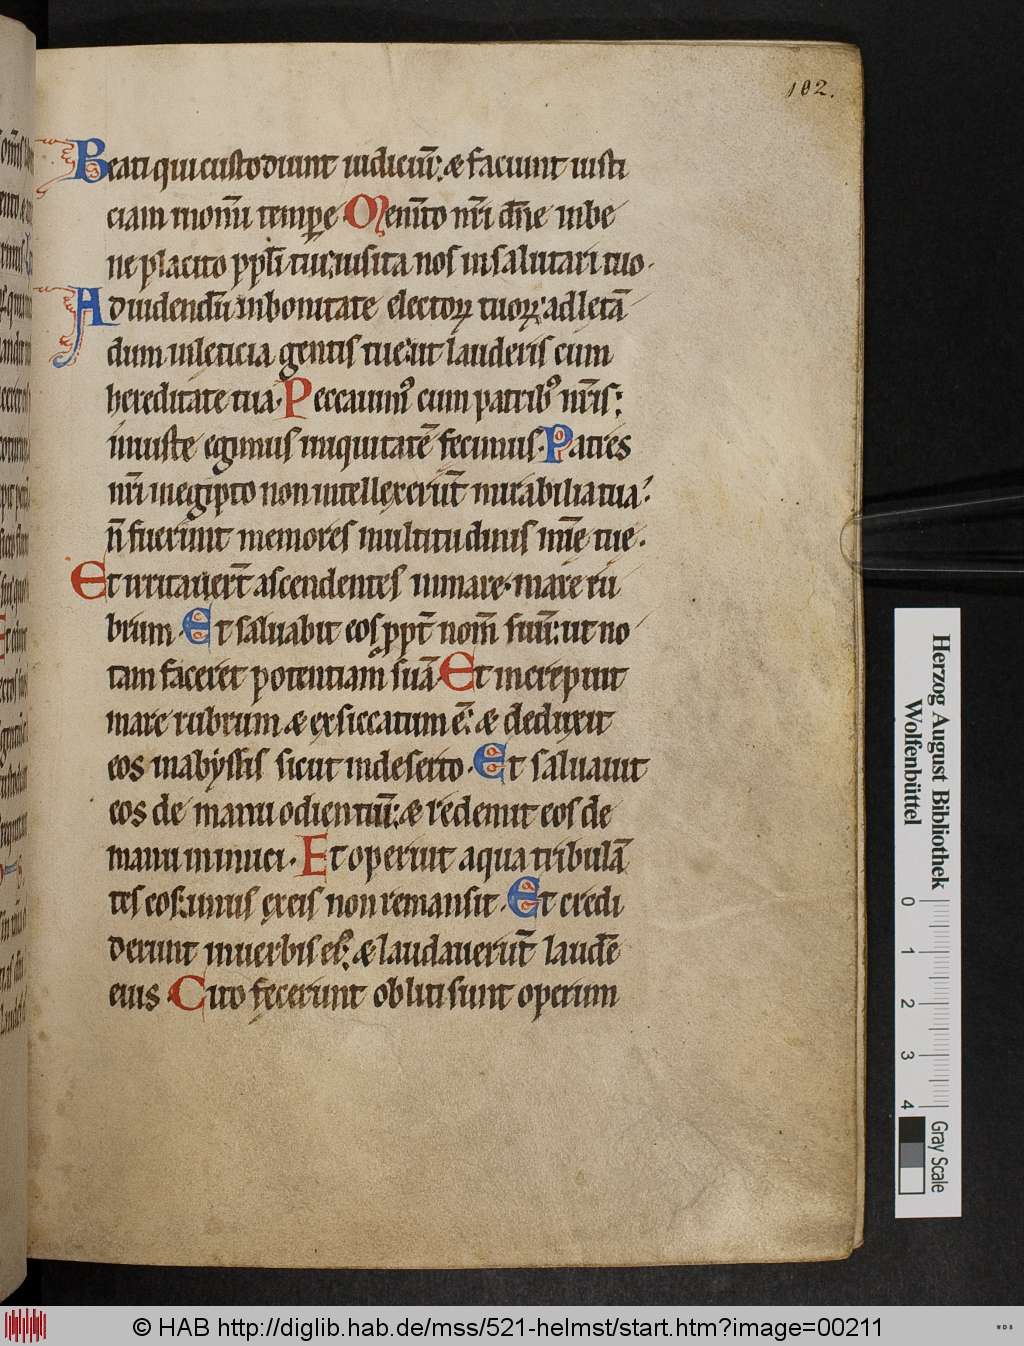 102.
Beati qui custodiunt iudiciū: & faciunt iusti
ciam in omnī tempꝛe. Memēto nr̄i dn̄e inbe
ne placito pp̄li tui: uisita nos insalutari tuo.
Ad uidendū inbonitate electoꝝ tuoꝝ: adlętā
dum inleticia gentis tue: ut lauderis cum
hereditate tua. Peccauimꝰ cum patribꝰ nr̄is:
iniuste egimus iniquitatē fecimus. Patres
nr̄i inegipto non intellexerūt mirabilia tua:
n̄ fuerunt memores multitudinis mīe tue.
Et irritauert̄ ascendentes inmare. mare ru
brum. Et saluabit eos ꝓpt̄ nom̄ suū: ut no
tam faceret potentiam suā. Et increpuit
mare rubrum & exsiccatum ē: & deduxit
eos inabyssis sicut indeserto. Et saluauit
eos de manu odientiū: & redemit eos de
manu inimici. Et operuit aqua tribulā
tes eos: unus ex eis non remansit. Et credi
derunt inuerbis eiꝰ: & laudauerūt laudē
eius. Cito fecerunt obliti sunt operum
Herzog August Bibliothek
Wolfenbüttel
0 1 2 3 4
Gray Scale
© HAB http://diglib.hab.de/mss/521-helmst/start.htm?image=00211